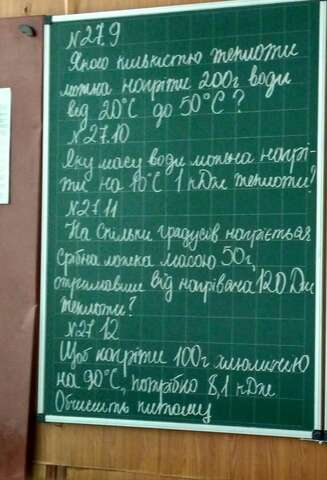 N27.9
Якою кількістю теплоти
можна нагріти 200г води
від 20°C до 50°C?
N27.10
Яку масу води можна нагрі-
ти на 10°C 1 кДж теплоти?
N27.11
На скільки градусів нагріється
срібна ложка масою 50г,
отримавши від нагрівача 120 Дж
теплоти?
N27.12
Щоб нагріти 100г алюмінію
на 90°C, потрібно 8,1 кДж
Обчисліть питому